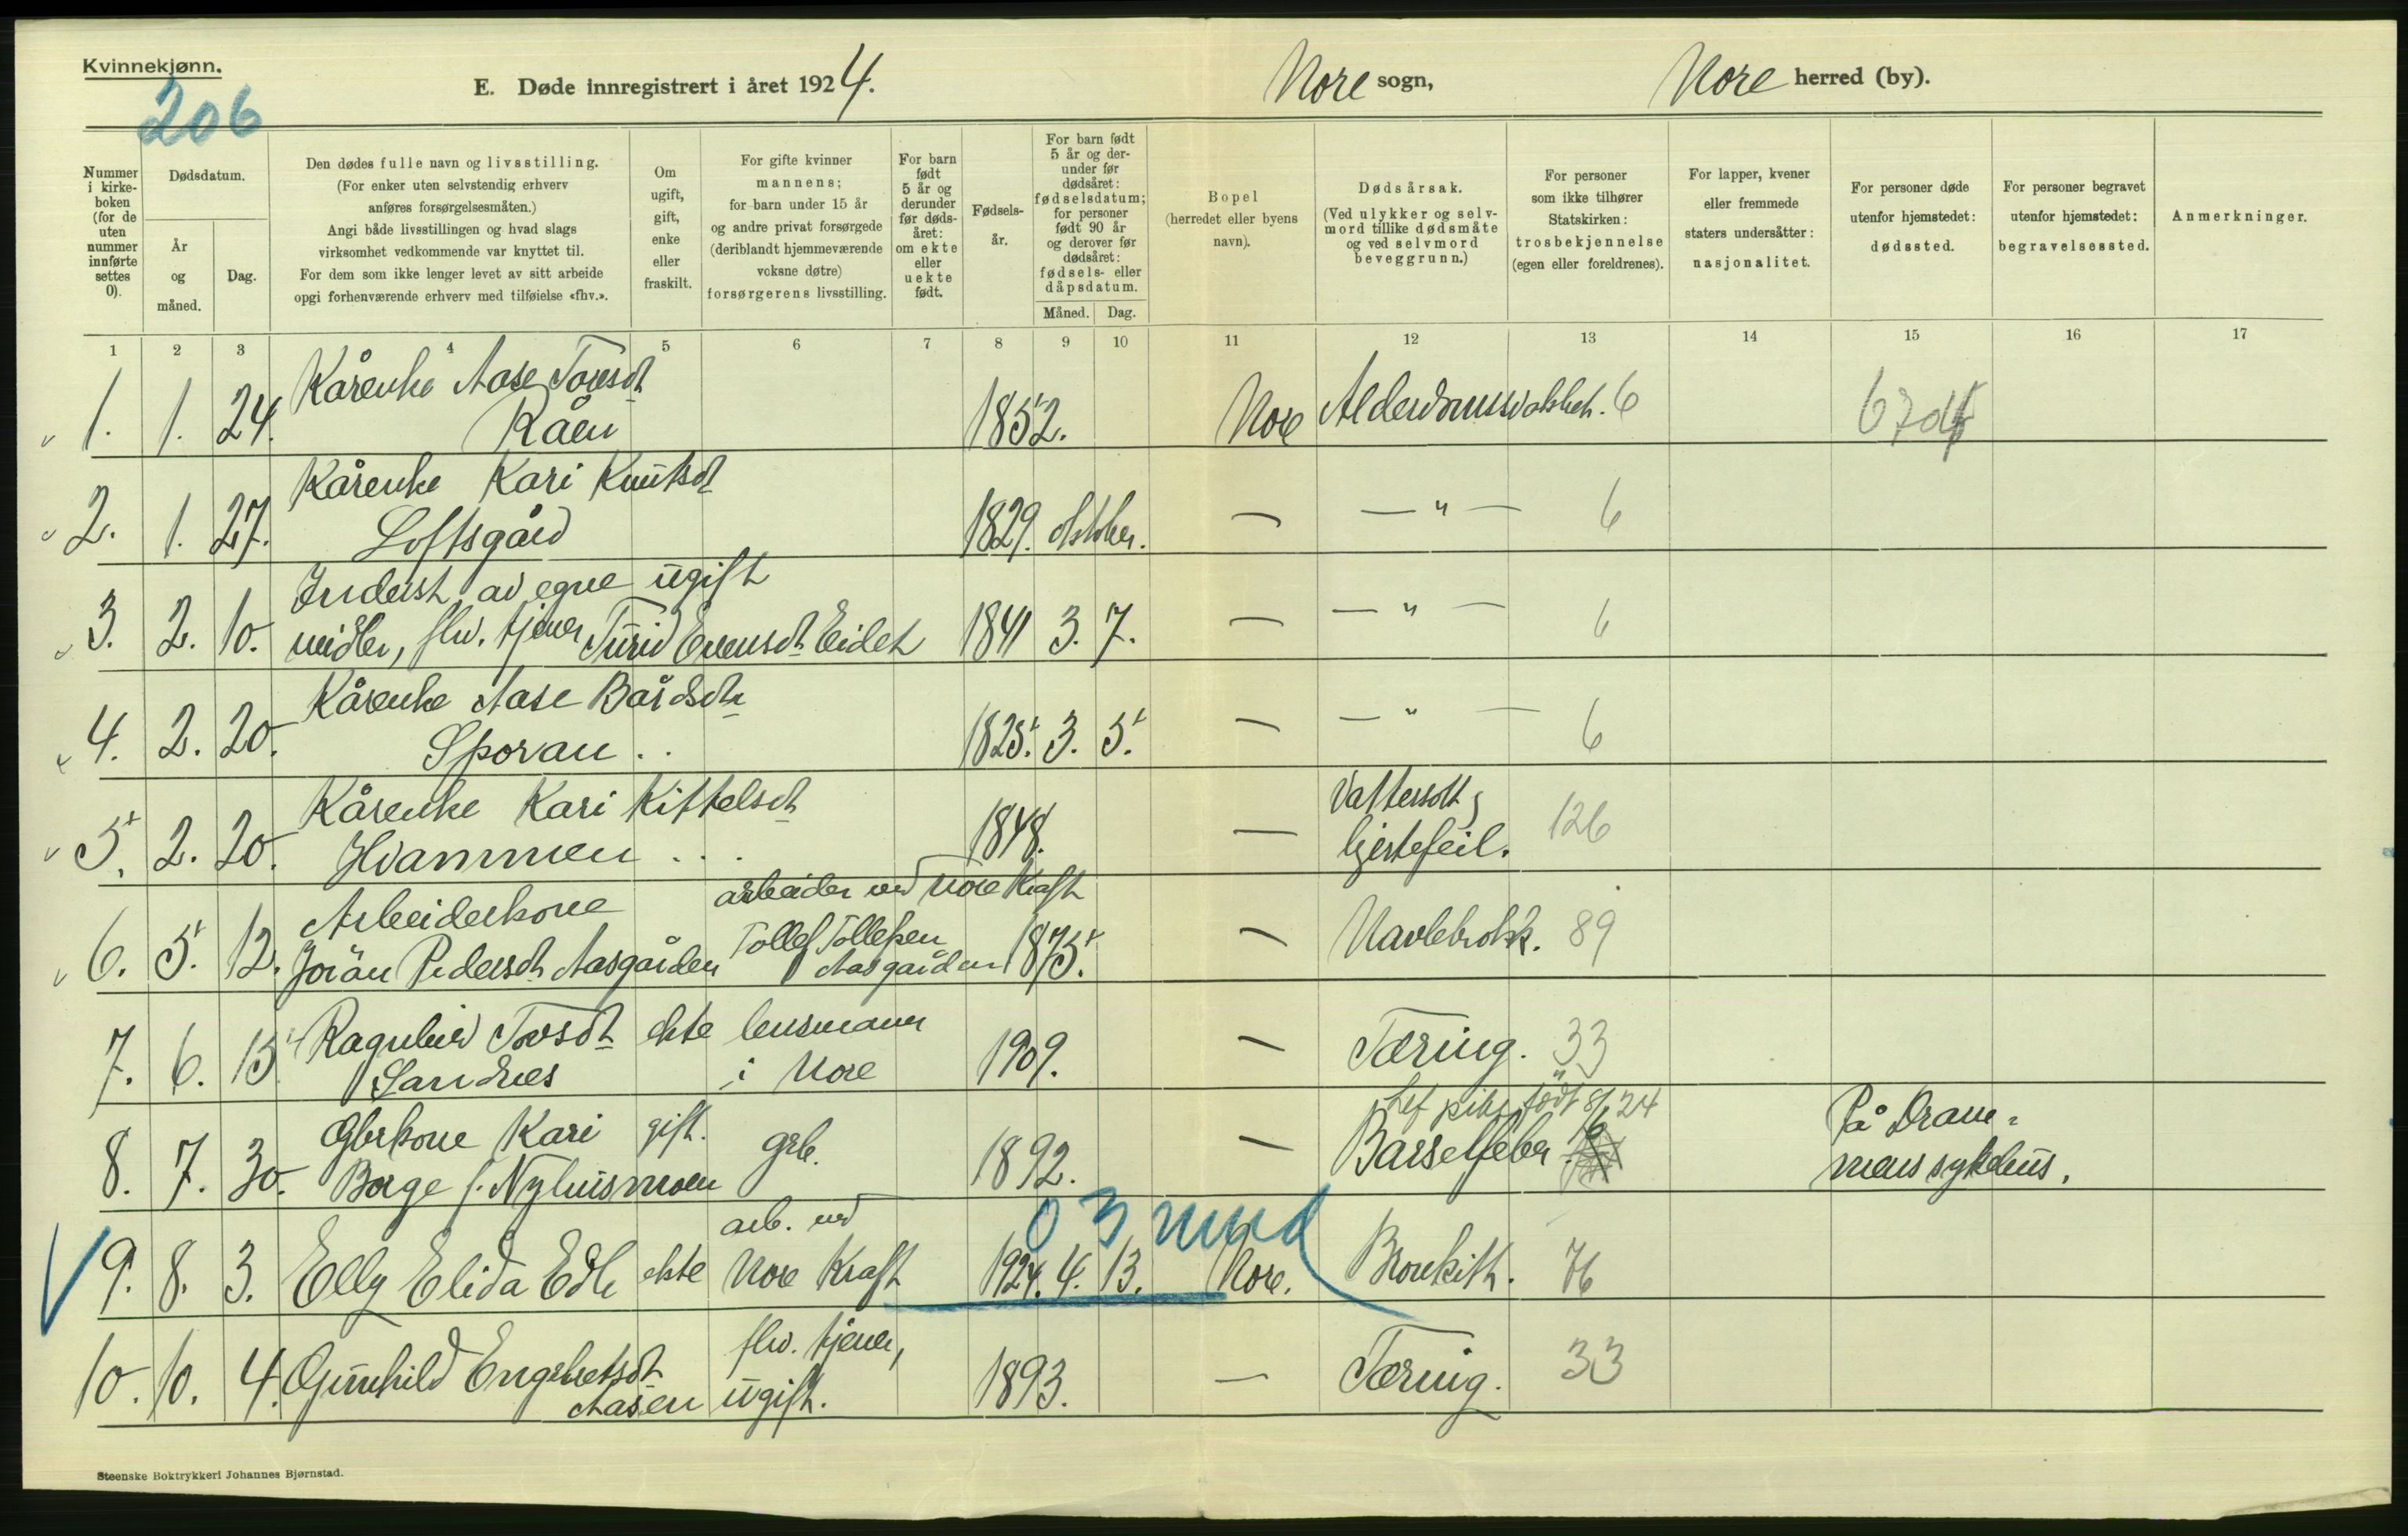 Kvinnekjønn.
206
E. Døde innregistrert i året 1924.
Nore sogn,
Nore herred (by).
Nummer
i kirke-
boken
(for de
uten
nummer
innførte
settes
0).
Dødsdatum.
År
og
måned.
Dag.
Den dødes fulle navn og livsstilling.
(For enker uten selvstendig erhverv
anføres forsørgelsesmåten.)
Angi både livsstillingen og hvad slags
virksomhet vedkommende var knyttet til.
For dem som ikke lenger levet av sitt arbeide
opgi forhenværende erhverv med tilføielse «fhv.».
Om
ugift,
gift,
enke
eller
fraskilt.
For gifte kvinner
mannens;
for barn under 15 år
og andre privat forsørgede
(deriblandt hjemmeværende
voksne døtre)
forsørgerens livsstilling.
For barn
født
5 år og
derunder
før døds-
året:
om ekte
eller
uekte
født.
Fødsels-
år.
For barn født
5 år og der-
under før
dødsåret:
fødselsdatum;
for personer
født 90 år
og derover før
dødsåret:
fødsels- eller
dåpsdatum.
Måned. Dag.
Bopel
(herredet eller byens
navn).
Dødsårsak.
(Ved ulykker og selv-
mord tillike dødsmåte
og ved selvmord
beveggrunn.)
For personer
som ikke tilhører
Statskirken:
trosbekjennelse
(egen eller foreldrenes).
For lapper, kvener
eller fremmede
staters undersåtter:
nasjonalitet.
For personer døde
utenfor hjemstedet:
dødssted.
For personer begravet
utenfor hjemstedet:
begravelsessted.
Anmerkninger.
1 2 3 4 5 6 7 8 9 10 11 12 13 14 15 16 17
Kårenke Aase Tovsdt
1. 1. 24. Råen 1852. Nore Alderdomssvakhet. 6
Kårenke Kari Knutsdt
2. 1. 27. Loftsgård 1829. oktober. — — " — 6
Inderst av egne ugift
3. 2. 10. midler, fhv. tjener Turid Evensdt Eidet 1841 3. 7. — — " — 6
Kårenke Aase Bårdsdt
4. 2. 20. Sporan . . 1825. 3. 5. — — " — 6
Kårenke Kari Kittelsdt Vattersott &
5. 2. 20. Hvammen . . . 1848. — hjertefeil. 126
Arbeiderkone arbeider ved Nore Kraft
6. 5. 12. Jorån Pedersdt Aasgården Tollef Tollefsen
Aasgården 1875. — Navlebrokk. 89
7. 6. 15. Ragnhild Tovsdt ekte lensmann 1909. — Tæring. 33
Sandnes i Nore
Lef pike født 8/24
Gbrkone Kari gift. grb. På Dram-
8. 7. 30. Borge f. Nyhusmoen 1892. — Barselfeber. mens sykehus.
03 mnd
arb. ved
9. 8. 3. Elly Elida Edh ekte Nore Kraft 1924. 4. 13. Nore. Bronkitt. 76
fhv. tjener,
10. 10. 4. Gunhild Engebretsdt 1893. — Tæring. 33
Aasen ugift.
Steenske Boktrykkeri Johannes Bjørnstad.